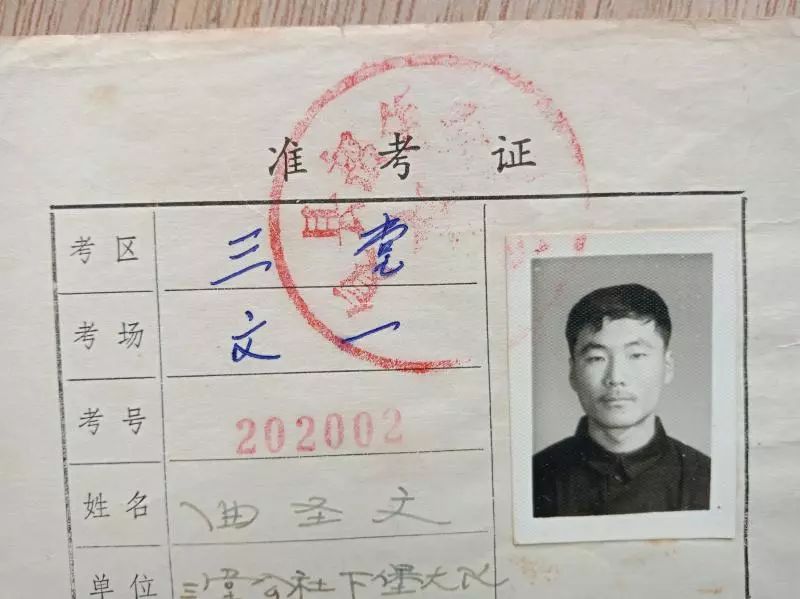 准考证
考区 三堂
考场 文一
考号 202002
姓名 曲圣文
单位 三堂公社下堡大队